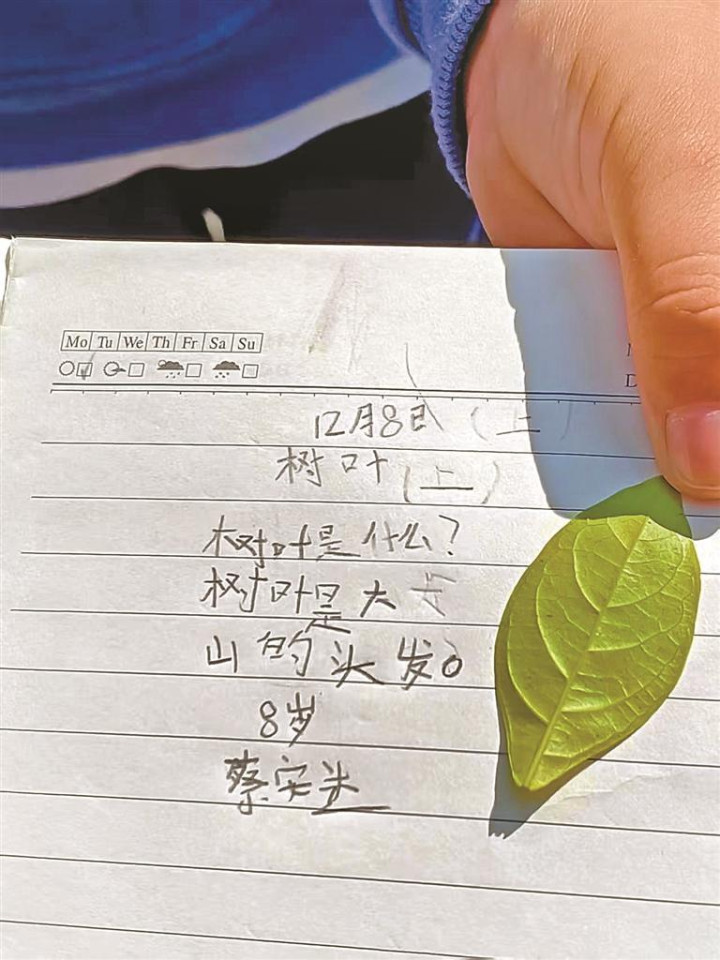 Mo Tu We Th Fr Sa Su
12月8日(上)
树叶(上)
树叶是什么?
树叶是大
山的头发。
8岁
蔡安